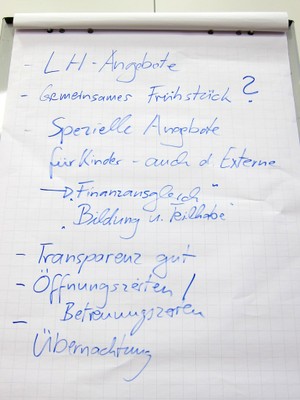 - LH-Angebote
- Gemeinsames Frühstück ?
- Spezielle Angebote
für Kinder - auch d. Externe
→ „Finanzausgleich"
„Bildung u. Teilhabe"
- Transparenz gut
- Öffnungszeiten /
Betreuungszeiten
- Übernachtung